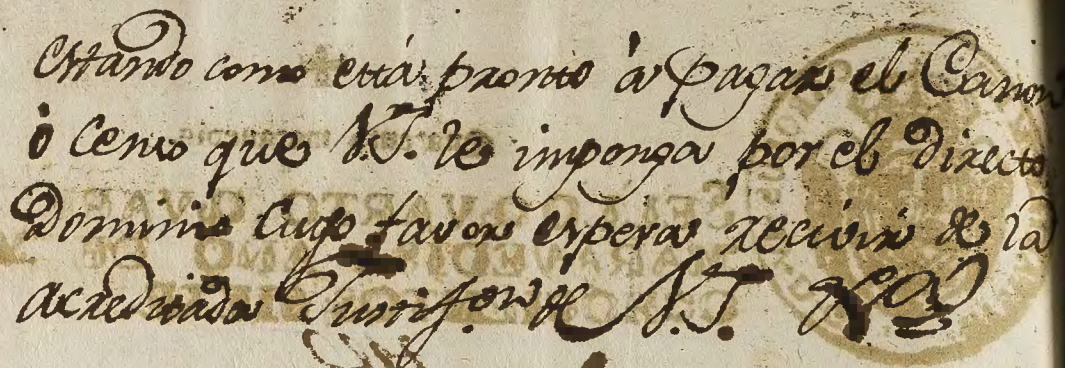 estando como está pronto á pagar el Canon
ó censo que V.S. le imponga por el directo
Dominio Cuyo favor espera recivir de la
acreditada Justif.on de V.S.